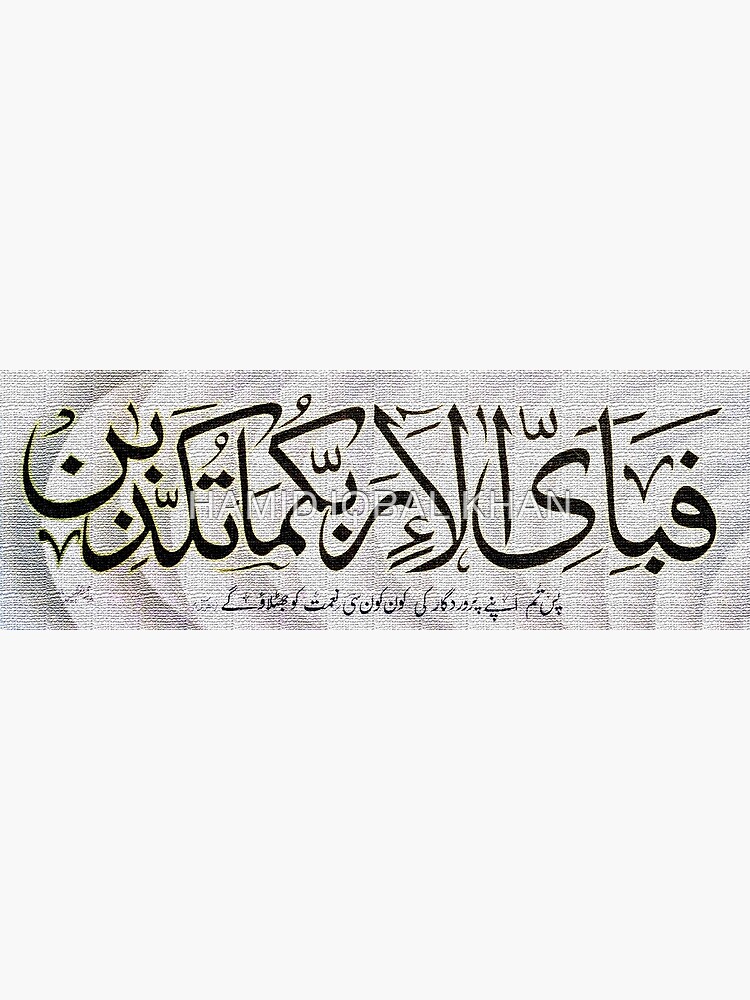 فَبِاَىِّ اٰلَاۤءِ رَبِّكُمَا تُكَذِّبٰنِ
HAMID IQBAL KHAN
پس تم اپنے پروردگار کی کون کون سی نعمت کو جھٹلاؤ گے